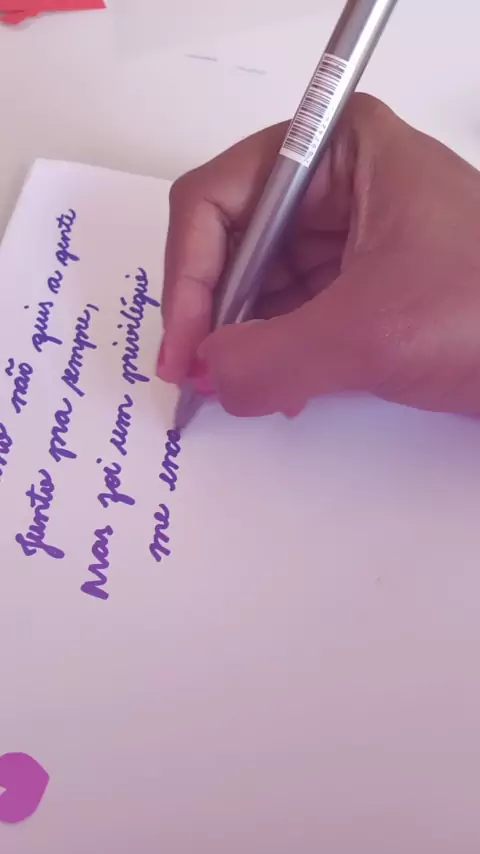 não quis a gente
Junto pra sempre,
Mas foi um privilégie
me enco